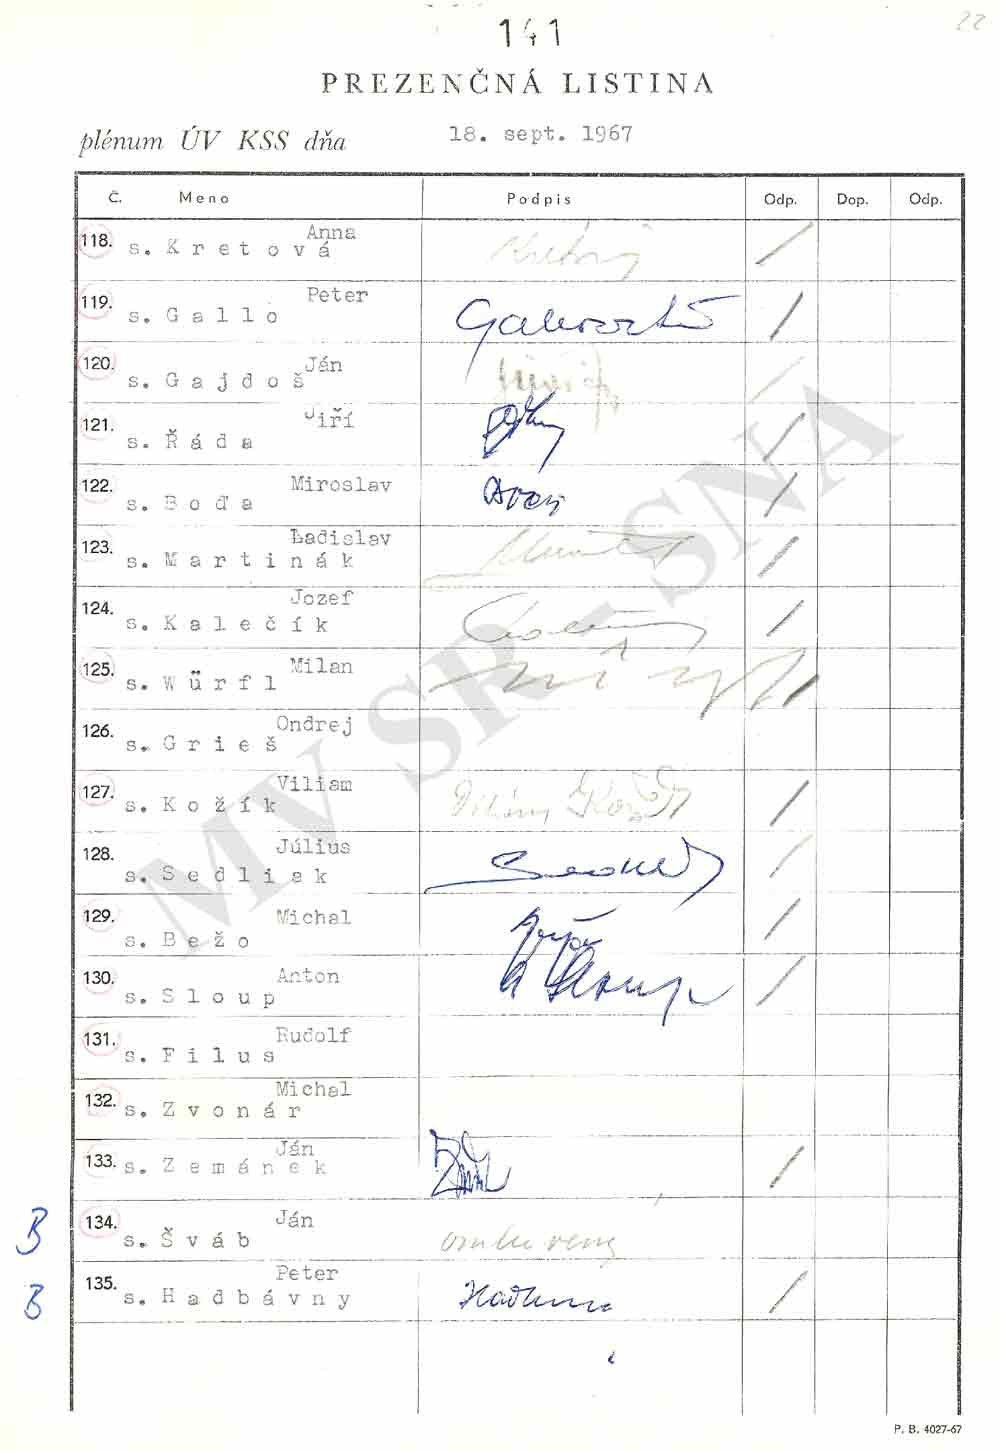 22
141
PREZENČNÁ LISTINA
plénum ÚV KSS dňa 18. sept. 1967
Č. Meno Podpis Odp. Dop. Odp.
118. s. Kretová Anna
119. s. Gallo Peter
120. s. Gajdoš Ján
121. s. Řáda Jiří
122. s. Boďa Miroslav
123. s. Martinák Ladislav
124. s. Kalečík Jozef
125. s. Würfl Milan
126. s. Grieš Ondrej
127. s. Kožík Viliam
128. s. Sedliak Július
129. s. Bežo Michal
130. s. Sloup Anton
131. s. Filus Rudolf
132. s. Zvonár Michal
133. s. Zemánek Ján
B 134. s. Šváb Ján
B 135. s. Hadbávny Peter
MV SR - SNA
P. B. 4027-67